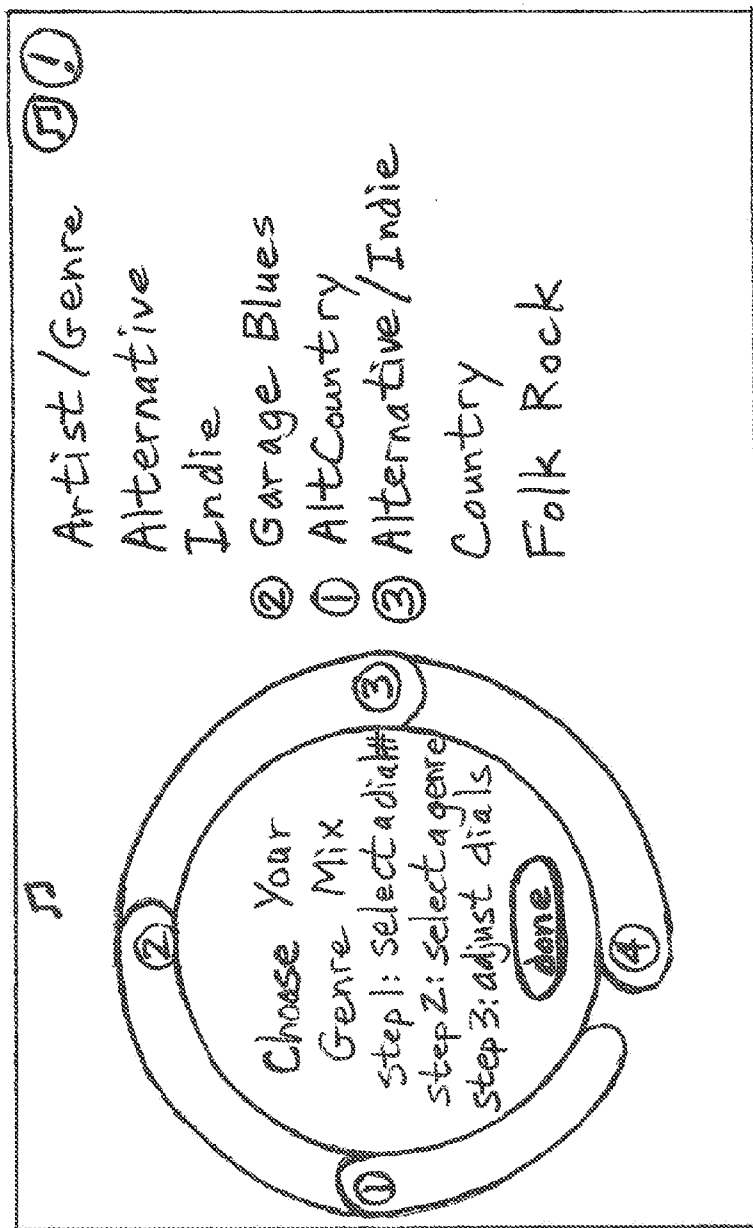 ②
①
③
④
Choose Your
Genre Mix
step 1: select a dial #
step 2: select a genre
step 3: adjust dials
done
Artist/Genre
!
Alternative
Indie
② Garage Blues
① AltCountry
③ Alternative/Indie
Country
Folk Rock